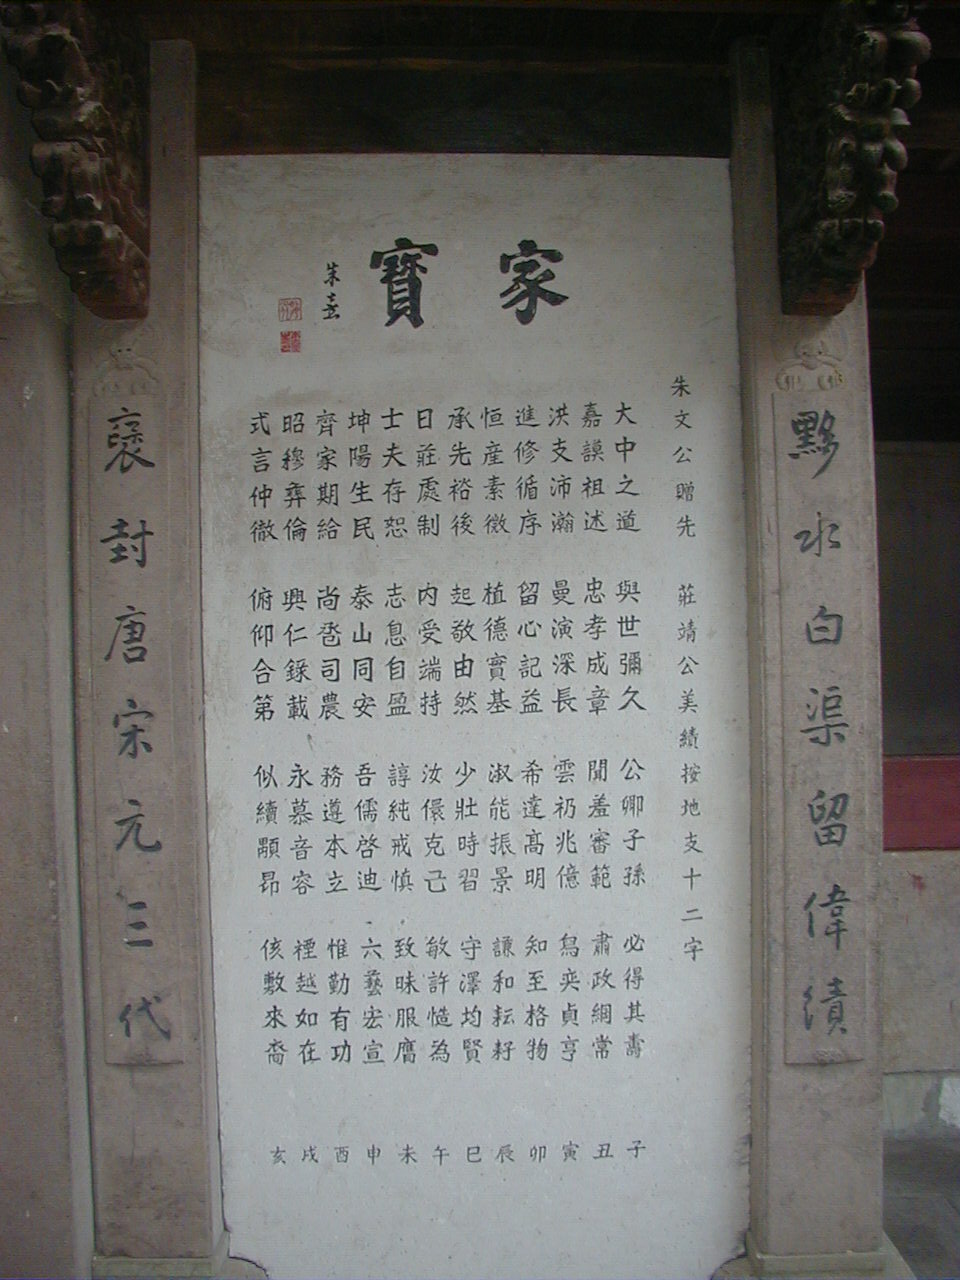 家寶
朱熹
黟水白渠留偉績
朱文公贈先 莊靖公美績按地支十二字
大中之道 與世彌久 公卿子孫 必得其壽 子
嘉謨祖述 忠孝成章 聞羞審範 肅政綱常 丑
洪支沛瀚 曼演深長 雲礽兆億 舄奕貞亨 寅
進修循序 留心記益 希達高明 知至格物 卯
恒産素徵 植德實基 淑能振景 謙和耘耔 辰
承先裕後 起敬由然 少壯時習 守澤均賢 巳
日莊處制 内受端持 汝儇克己 敏許慥為 午
士夫存恕 志息自盈 諄純戒慎 致昧服膺 未
坤陽生民 泰山同安 吾儒啓迪 六藝宏宣 申
齊家期給 尚咨司農 務遵本立 惟勤有功 酉
昭穆彝倫 興仁錄載 永慕音容 禋越如在 戌
式言仲徹 俯仰合第 似續顒昂 侅敷來裔 亥
褒封唐宋元三代